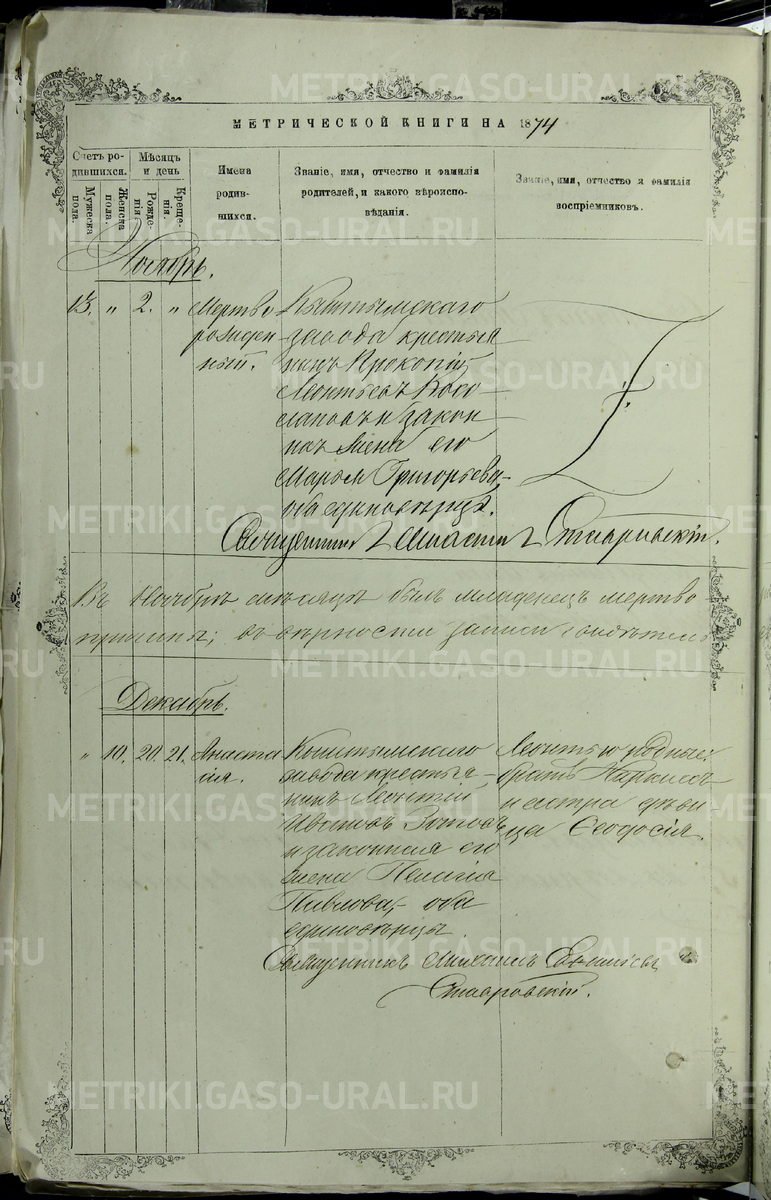 МЕТРИЧЕСКОЙ КНИГИ НА 1874
Счетъ ро-
дившихся.
Мужеска
пола.
Женска
пола.
Мѣсяцъ
и день
Рожде-
нія.
Креще-
нія.
Имена
родив-
шихся.
Званіе, имя, отчество и фамилія
родителей, и какого вѣроиспо-
вѣданія.
Званіе, имя, отчество и фамилія
воспріемниковъ.
Ноябрь.
13. „ 2. „ Мертво
рожден
ный.
Кыштымскаго
завода крестья
нинъ Прокопій
Леонтьевъ
и закон
ная жена его
Марья Григорьева,
оба единовѣрцы.
Священникъ Ставровскій.
Въ Ноябрѣ мѣсяцѣ былъ младенецъ мертво
въ вѣрности записи
Декабрь.
„ 10. 20. 21. Анаста
сія.
Кыштымскаго
завода крестья-
нинъ Леонтій
Ивановъ Зотовъ
и законная его
жена Пелагія
Павлова, оба
единовѣрцы.
братъ
и сестра дѣви
ца Ѳеодосія.
Священникъ
Ставровскій.
METRIKI.GASO-URAL.RU